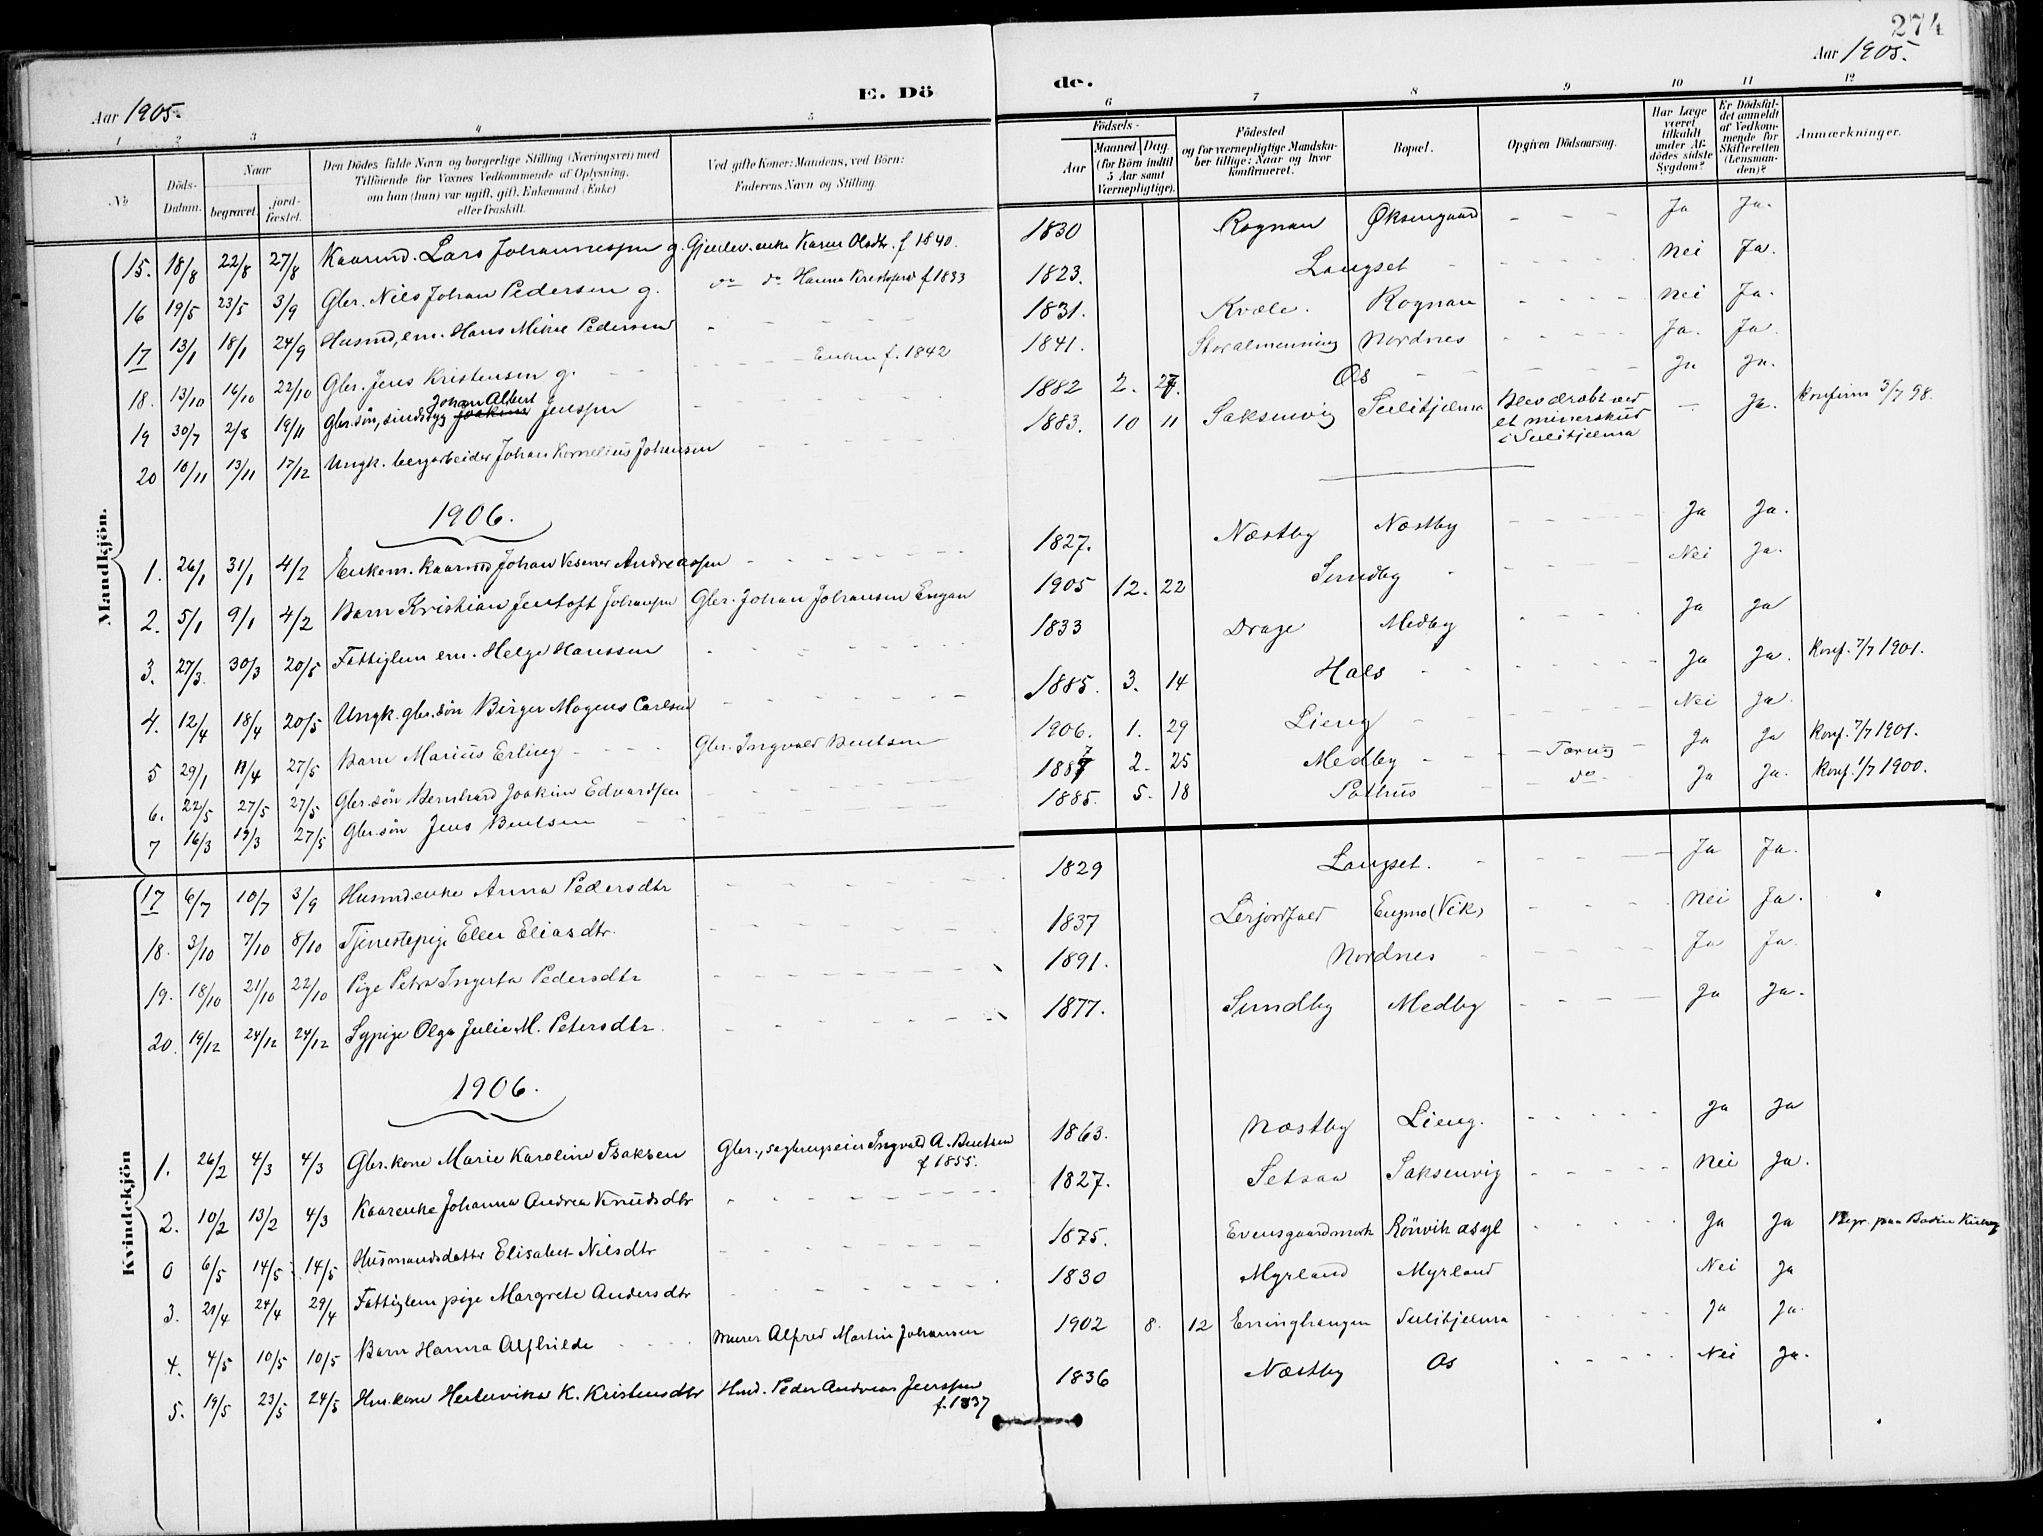 274
Aar 1905.
E. Dö
de.
Aar 1905.
1 2 3 4 5 6 7 8 9 10 11 12
No
Döds-Datum.
Naar
begravet.
jord-fæstet.
Den Dödes fulde Navn og borgerlige Stilling (Næringsvei) med
Tilföiende for Voxnes Vedkommende af Oplysning,
om han (hun) var ugift, gift, Enkemand (Enke)
eller fraskilt.
Ved gifte Koner: Mandens, ved Börn:
Faderens Navn og Stilling.
Födsels-
Aar
Maaned
Dag
(for Börn indtil
5 Aar samt
Værnepligtige).
Födested
og for værnepligtige Mandska-
ber tillige: Naar og hvor
konfirmeret.
Bopæl.
Opgiven Dödsaarsag.
Har Læge
været
tilkaldt
under Af-
dödes sidste
Sygdom?
Er Dödsfal-
det anmeldt
af Vedkom-
mende for
Skifteretten
(Lensman-
den)?
Anmærkninger.
Mandkjön.
15. 18/8 22/8 27/8 Kaarmd. Lars Johannessen g. Gjenlev. enke Karen Olsdtr. f 1840. 1830 Rognan Øksengaard - - - Ja Ja.
16 19/5 23/5 3/9 Gbr. Nils Johan Pedersen g. do do Hanna Kristofersd f 1833 1823. Langset - - - Nei Ja.
17 13/1 18/1 24/9 Husmd, em. Hans Mikal Pedersen - - - 1831. Kvæle. Rognan - - - Nei Ja.
18. 13/10 16/10 22/10 Gbr. Jens Kristensen g. - - - Enken f. 1842 1841. Storalmenning Nordnes - - - Ja. Ja.
19 30/7 2/8 19/11 Gbr. søn, sindssyg Johan Albert Joakim Jenssen - - - 1882 2. 27. Os - - - Ja Ja.
20 10/11 13/11 17/12 Ungk. bergarbeider Johan Kornelius Johansen 1883. 10 11 Saksenvig Sulitjelma Blev dræbt ved
et mineskud
i Sulitjelma - Ja. Konfirm 3/7 98.
1906.
1. 26/1 31/1 4/2 Enkem. kaarmd Johan Vesener Andreassen - - - 1827. Næstby Næstby - - - Ja Ja.
2. 5/1 9/1 4/2 Barn Kristian Jentoft Johansen Gbr. Johan Johansen Engan 1905 12. 22 Sundby - - - Nei Ja.
3. 27/3 30/3 20/5 Fattiglem em. Helge Hanssen - - - 1833 Drage Medby - - - Ja Ja
4. 12/4 18/4 20/5 Ungk. gbr. søn Birger Mogens Carlsen - - - 1885. 3. 14 Hals - - - Ja Ja. Konf. 7/7 1901.
5 29/1 11/4 27/5 Barn Marius Erling - - - Gbr. Ingvald Bentsen 1906. 1. 29 Lieng - - - Nei Ja.
6. 22/5 27/5 27/5 Gbr. søn Bernhard Joakim Edvardsen - - - 1887 2. 25 Medby - - - Tæring Ja Ja Konf. 7/7 1901.
7 16/3 19/3 27/5 Gbr. søn Jens Bentsen - - - 1885. 5. 18 Pothus - do - Ja Ja. Konf. 1/7 1900.
Kvindekjön
17 6/7 10/7 3/9 Husmd. enke Anna Pedersdtr - - - 1829 Langset. - - - Ja Ja.
18. 3/10 7/10 8/10 Tjenestepige Ellen Eliasdtr. - - - 1837 Lerjordfald Engmo (Vik) - - - Nei Ja.
19. 18/10 21/10 22/10 Pige Petra Ingerta Pedersdtr - - - 1891. Nordnes - Ja Ja.
20. 19/12 24/12 24/12 Sypige Olga Julie M. Petersdtr. - - - 1877. Sundby Medby - - - Ja Ja.
1906.
1. 26/2 4/3 4/3 Gbr. kone Marie Karoline Isaksen Gbr., sagbrugseier Ingvald A. Bentsen
f 1855. 1863. Næstby Lieng. - - - Ja Ja
2. 10/2 13/2 4/3 Kaarenke Johanna Andrea Knudsdtr - - - 1827. Setsaa Saksenvig - - - Nei Ja.
0 6/5 14/5 14/5 Husmandsdatter Elisabet Nilsdtr - - - 1875. Evensgaardmark Rönvik asyl - - - Ja Ja Begr. paa Bodin Kirkeg
3. 21/4 24/4 29/4 Fattiglem pige Margrete Andersdtr - - - 1830 Myrland Myrland Nei Ja
4. 4/5 10/5 10/5 Barn Hanna Alfhilde - - - murer Alfred Martin Johansen 1902 8. 12 Erringhaugen Sulitjelma - - - Ja Ja.
5. 19/5 23/5 24/5 Hm. kone Hertervikke K. Kristensdtr Hmd. Peder Andreas Jenssen
f. 1837 1836 Næstby Os - - - Nei Ja.